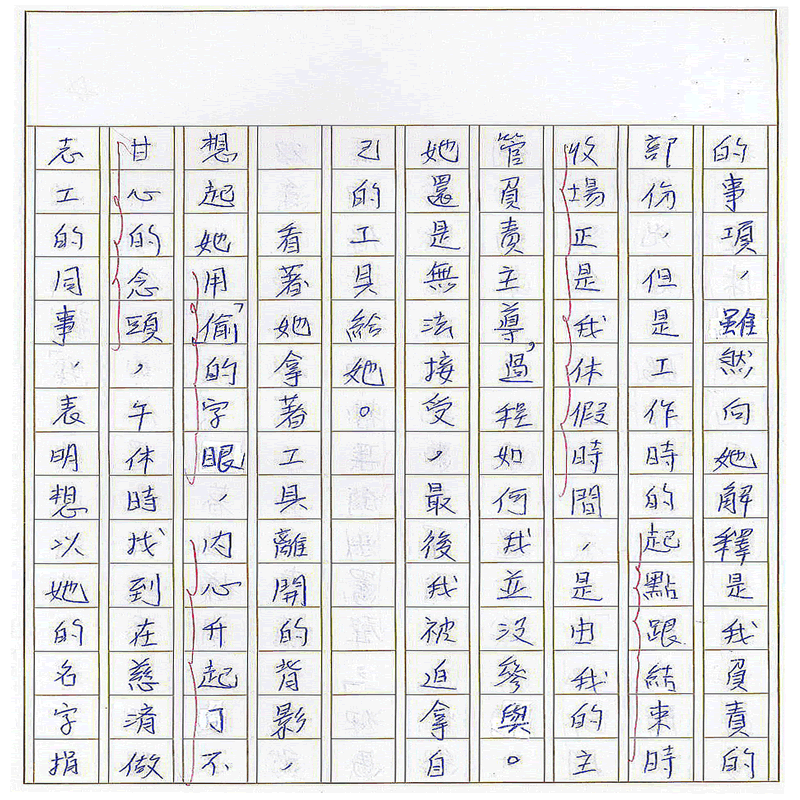 的事項，雖然向她解釋是我負責的
部份，但是工作時的起點跟結束時
收場正是我休假時間，是由我的主
管負責主導，過程如何我並沒參與。
她還是無法接受，最後我被迫拿自
己的工具給她。
看著她拿著工具離開的背影，
想起她用「偷」的字眼，內心升起了不
甘心的念頭，午休時找到在慈濟做
志工的同事，表明想以她的名字捐